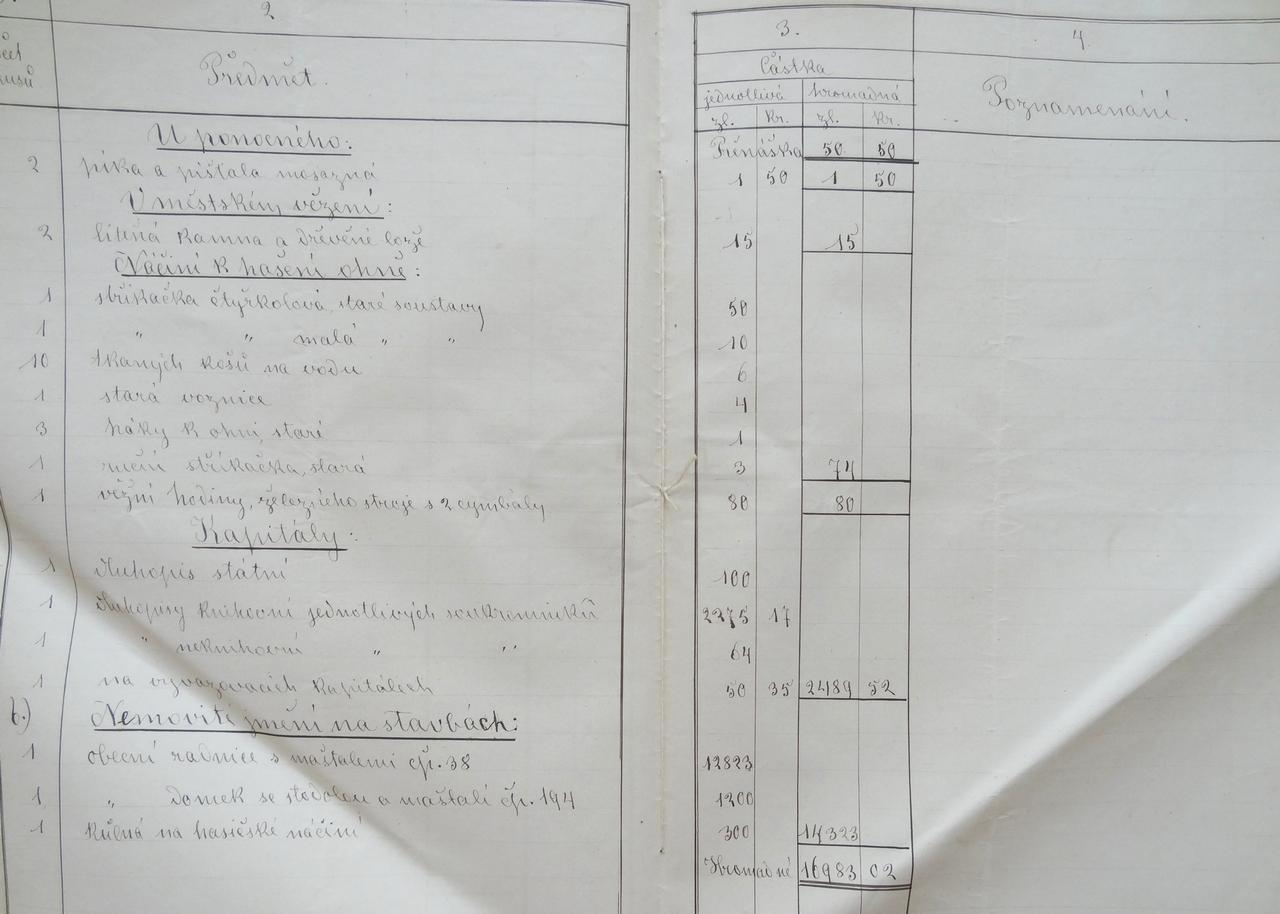 2 3. 4.
kusů Předmět. Částka Poznamenání.
jednotlivá hromadná
zl. kr. zl. kr.
U ponocného: Přenáška 50 50
2 píka a píšťala mosazná 1 50 1 50
V městském vězení:
2 litená kamna a dřevěné lože 15 15
Náčiní k hašení ohně:
1 stříkačka čtyřkolová, staré soustavy 50
1 " " malá " " 10
10 tkaných košů na vodu 6
1 stará voznice 4
3 háky k ohni, staré 1
1 ruční stříkačka, stará 3 74
1 věžní hodiny, železného stroje s 2 cymbály 80 80
Kapitály:
1 dluhopis státní 100
1 dluhopisy knihovní jednotlivých soukromníků 2275 17
1 " neknihovní " " 64
1 na vyvazovacích kapitálech 50 35 2489 52
b.) Nemovité jmění na stavbách:
1 obecní radnice s maštalemi čp. 38 12823
1 " domek se stodolou a maštalí čp. 194 1200
1 kůlna na hasičské náčiní 300 14323
Hromadně 16983 02